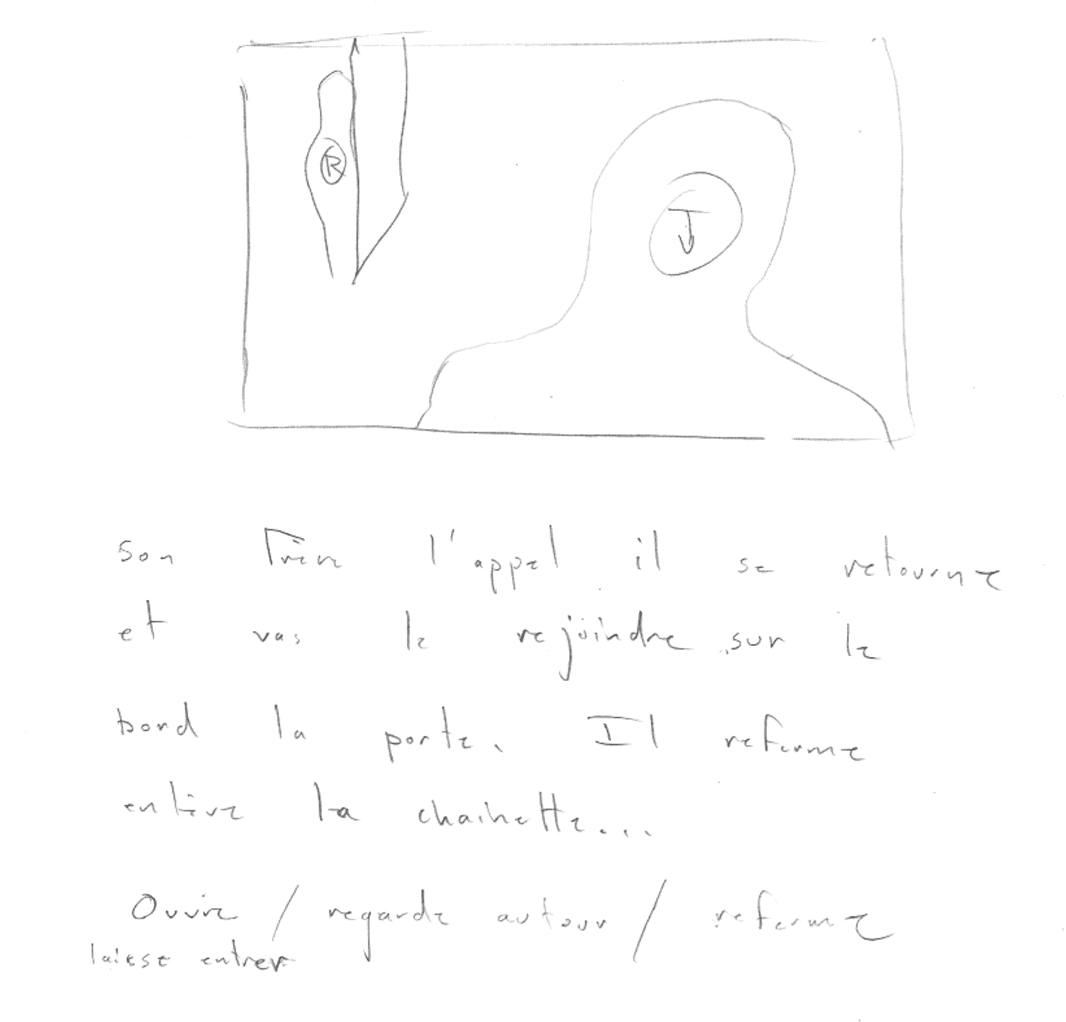 R
J
son frère l'appel il se retourne
et vas le rejoindre sur le
bord la porte. Il referme
enlève la chainette...
Ouvre / regarde autour / referme
laisse entrer